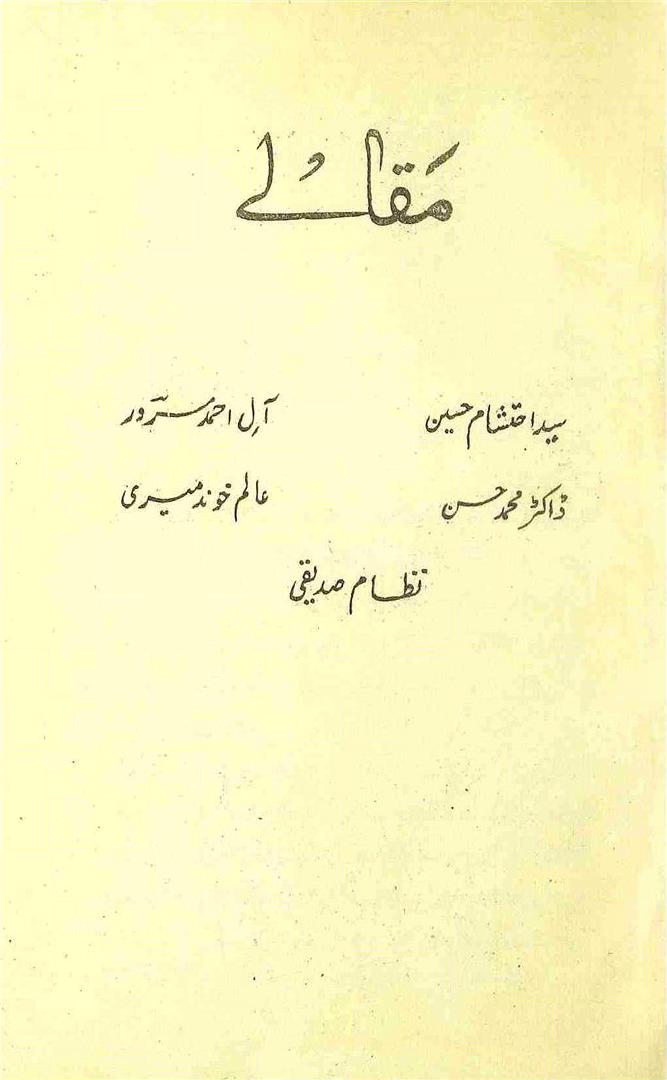 مقالے
سید احتشام حسین آلِ احمد سرور
ڈاکٹر محمد حسن عالم خوندمیری
نظام صدیقی